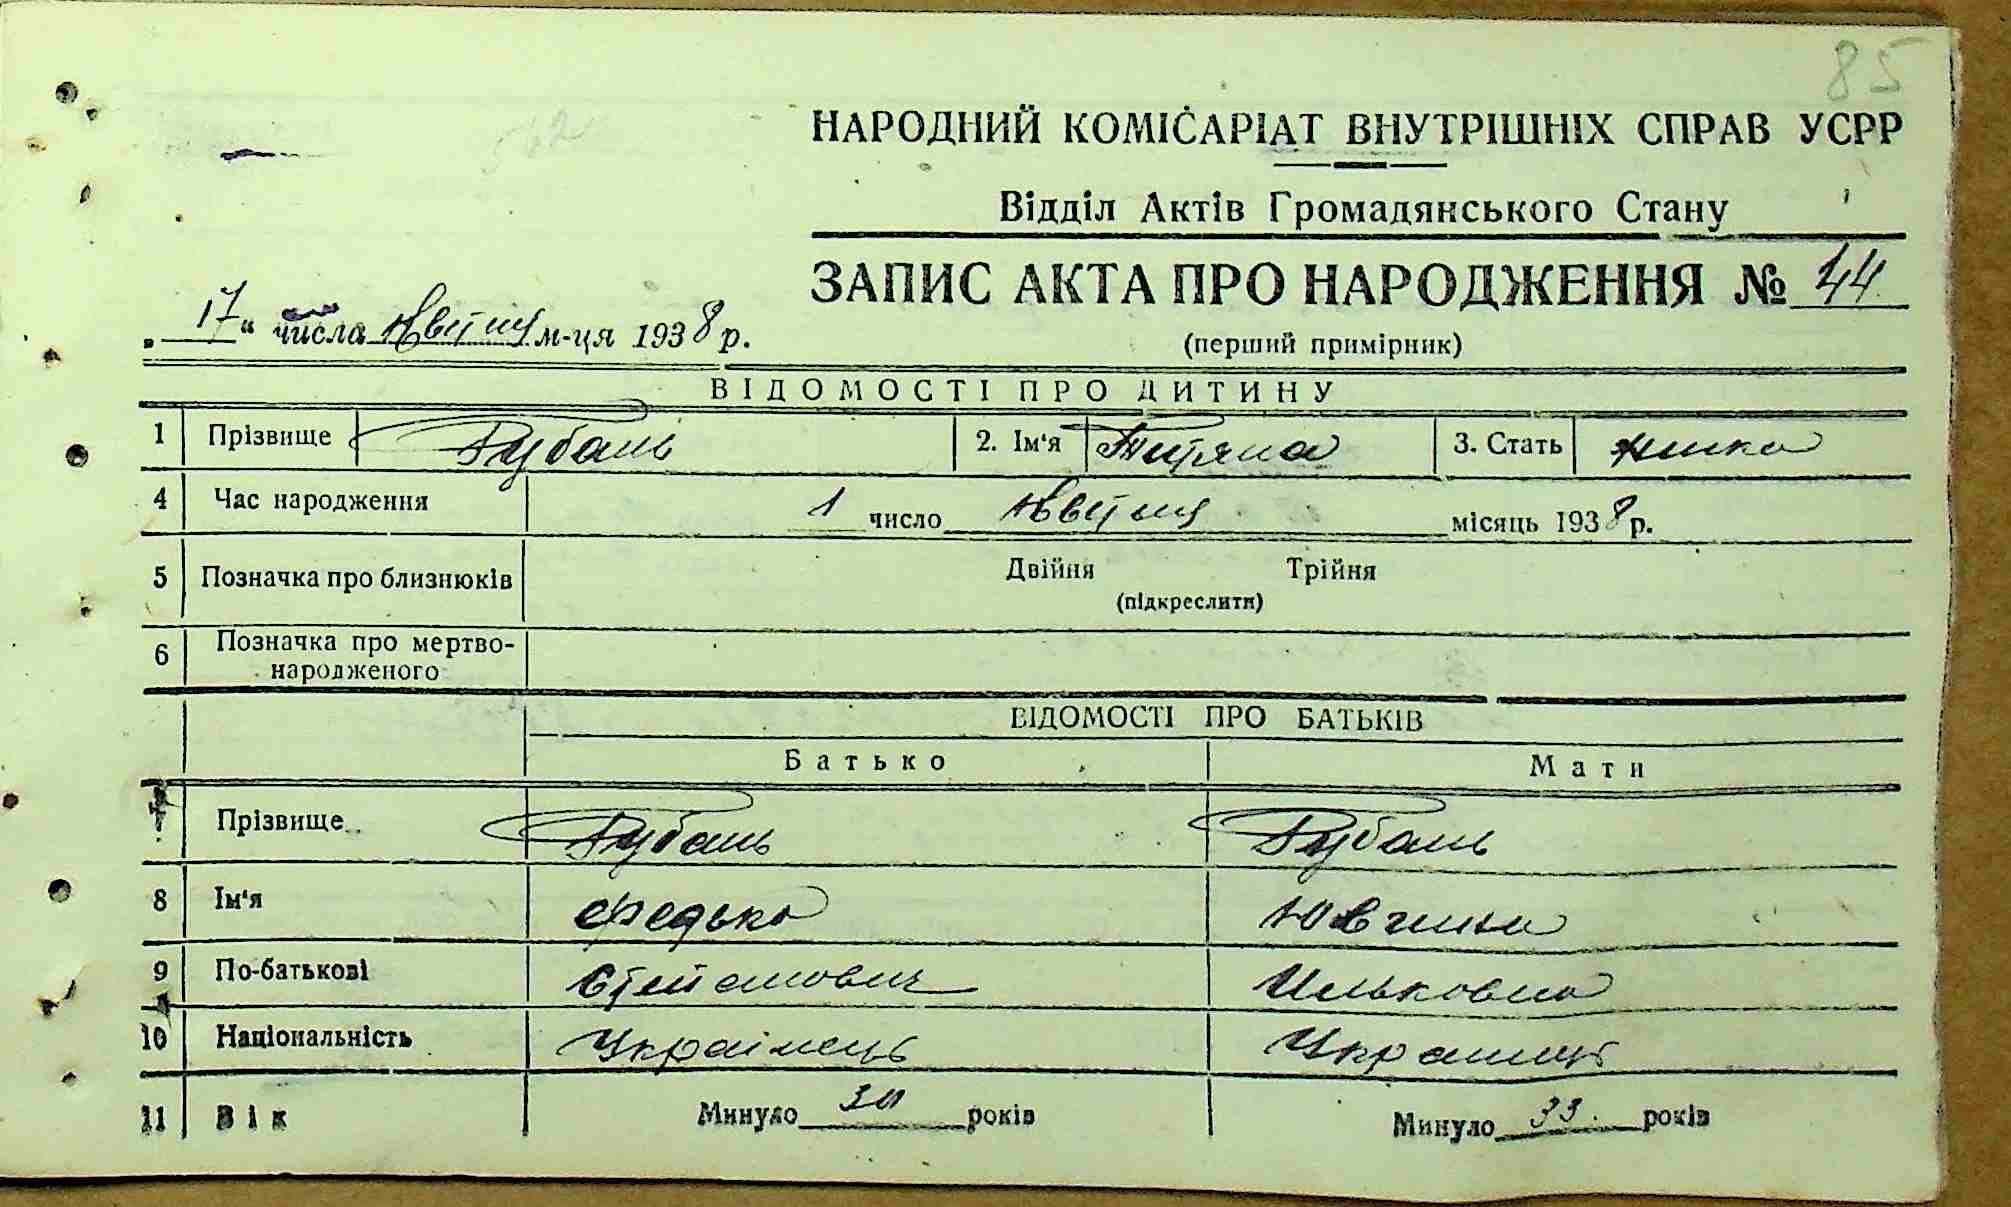 85
НАРОДНИЙ КОМІСАРІАТ ВНУТРІШНІХ СПРАВ УСРР
Відділ Актів Громадянського Стану
ЗАПИС АКТА ПРО НАРОДЖЕННЯ № 44
„17“ числа Квітня м-ця 1938 р.
(перший примірник)
ВІДОМОСТІ ПРО ДИТИНУ
1 Прізвище Рубань 2. Ім'я Титяна 3. Стать жінка
4 Час народження 1 число Квітня місяць 1938 р.
5 Позначка про близнюків Двійня Трійня
(підкреслити)
6 Позначка про мертво-
народженого
ВІДОМОСТІ ПРО БАТЬКІВ
Батько Мати
7 Прізвище Рубань Рубань
8 Ім'я Федько Ювгина
9 По-батькові Степанович Ильковна
10 Національність Українець
11 Вік Минуло 30 років Минуло 33 років